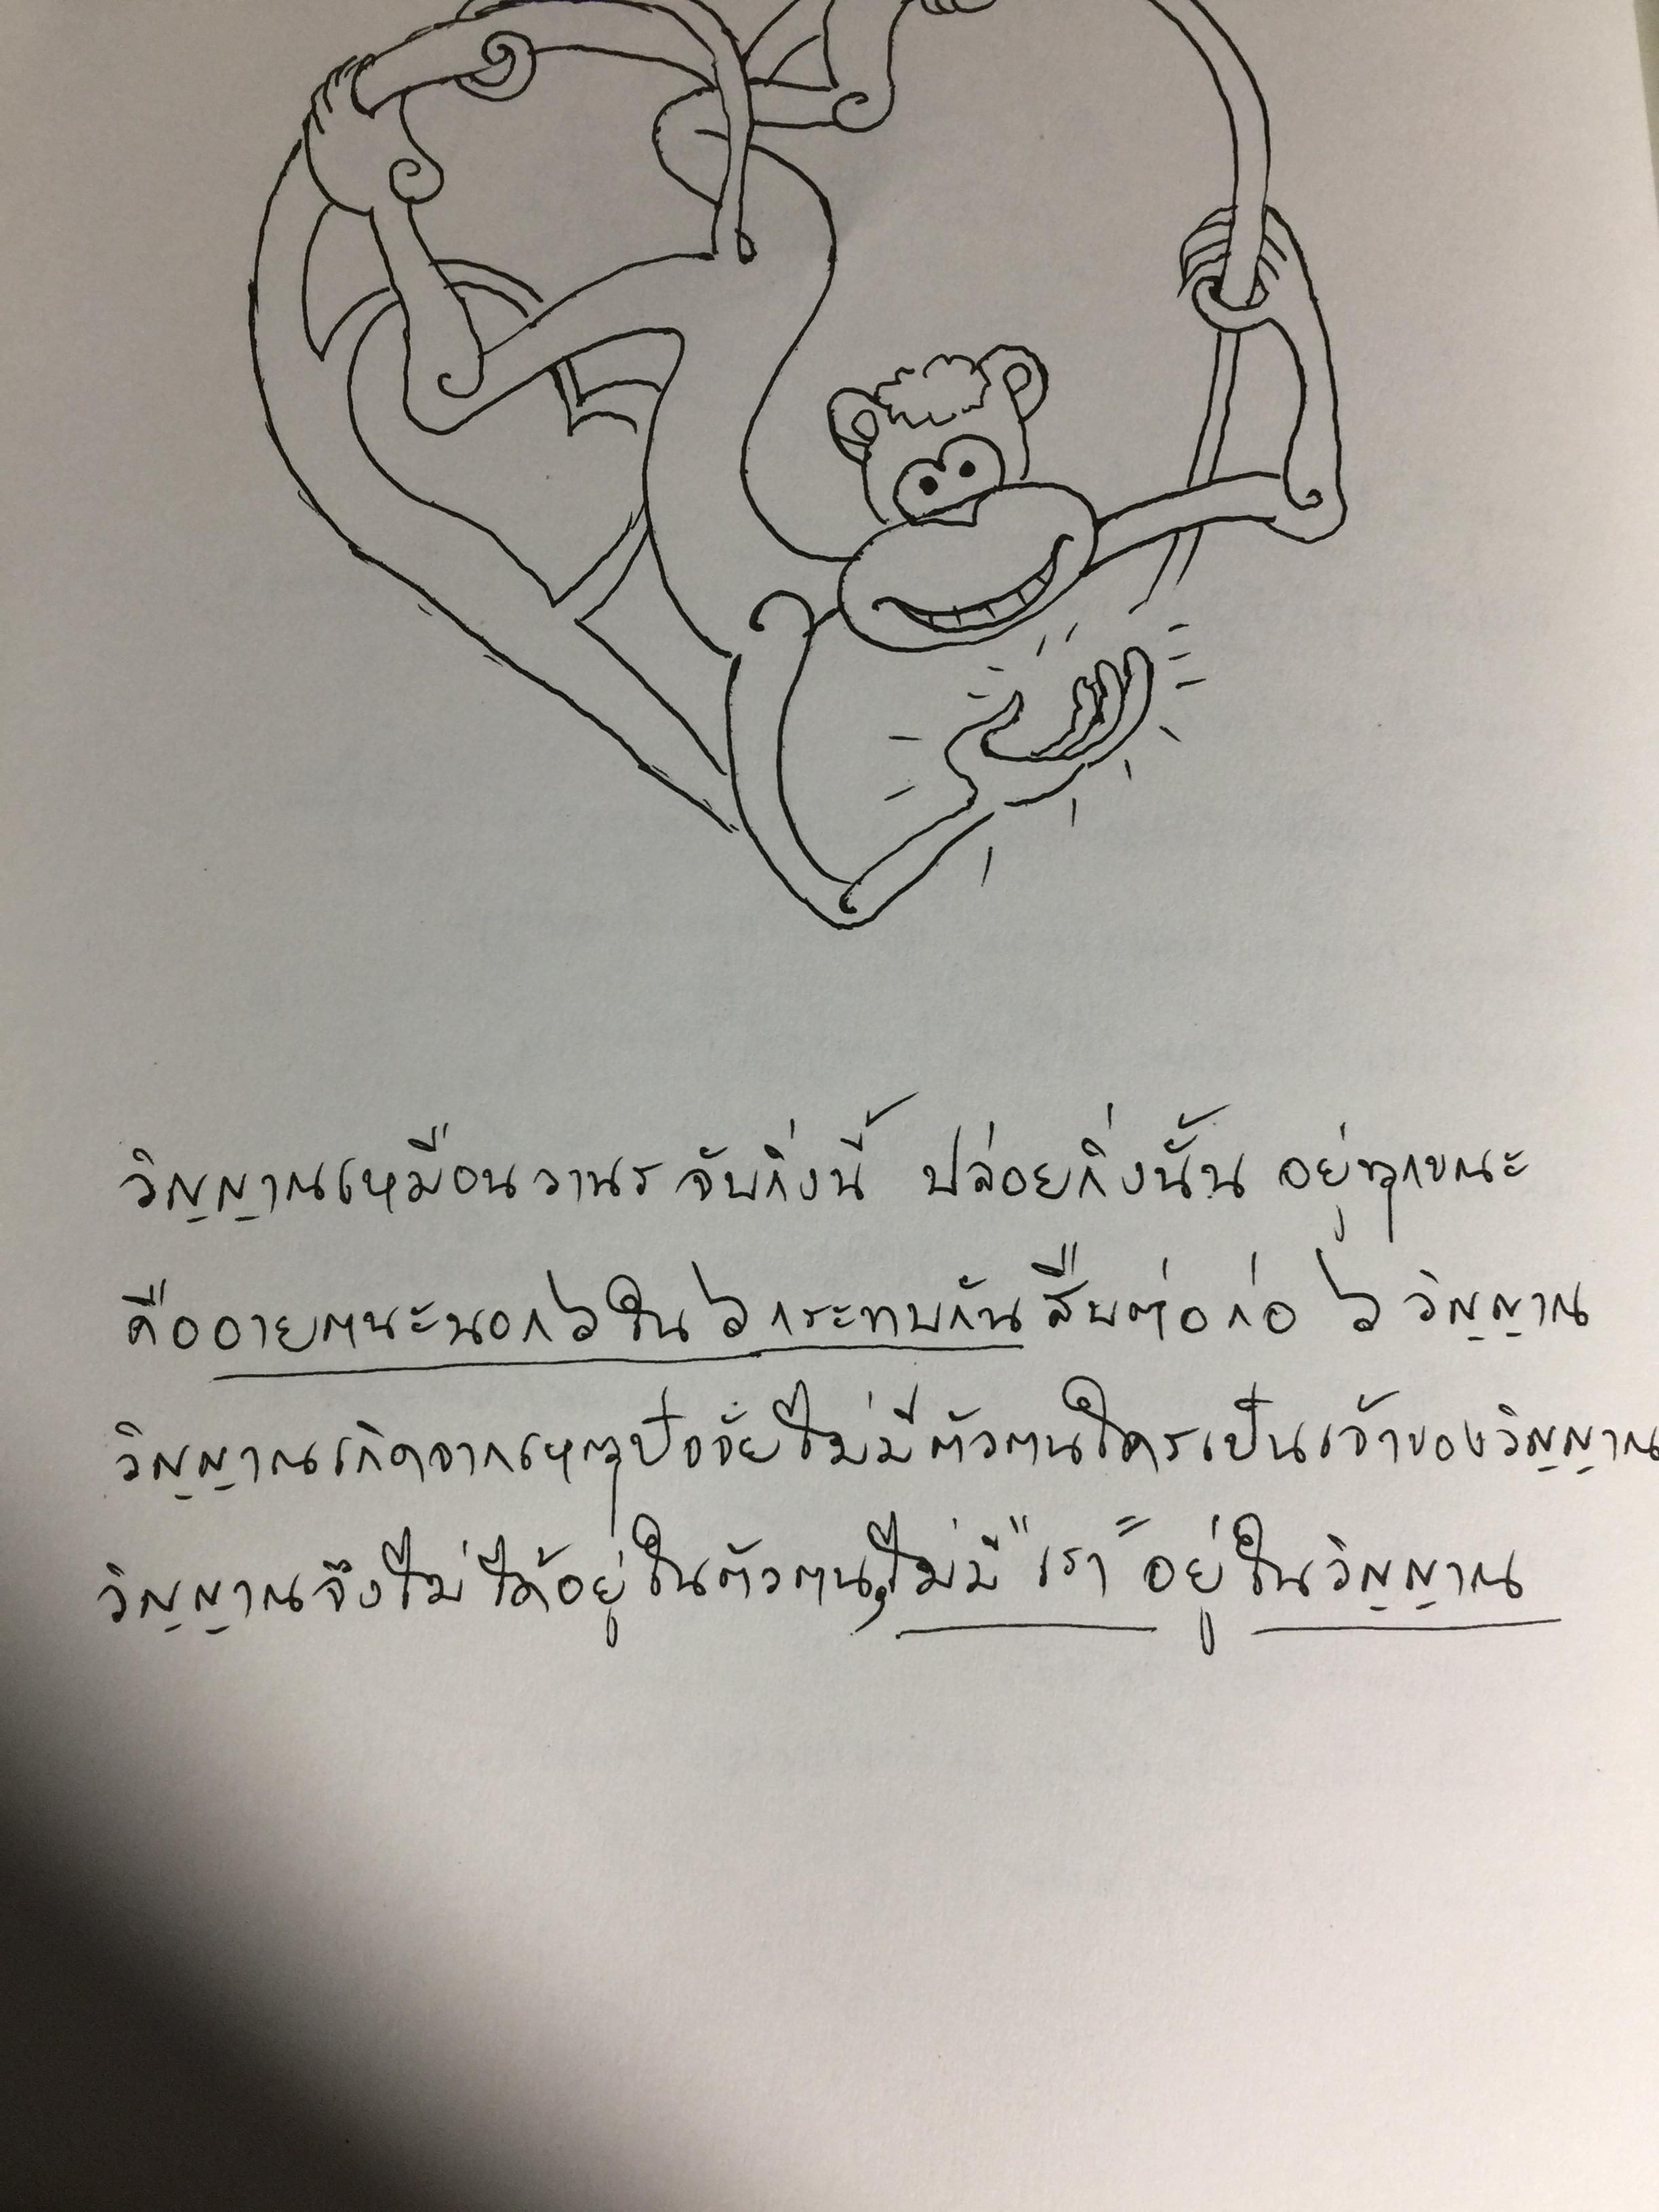 วิญญาณเหมือนวานร จับกิ่งนี้ ปล่อยกิ่งนั้น อยู่ทุกขณะ
คืออายตนะนอก ๖ ใน ๖ กระทบกัน สืบต่อก่อ ๖ วิญญาณ
วิญญาณเกิดจากเหตุปัจจัยไม่มีตัวตนใครเป็นเจ้าของวิญญาณ
วิญญาณจึงไม่ได้อยู่ในตัวตน, ไม่มี "เรา" อยู่ในวิญญาณ